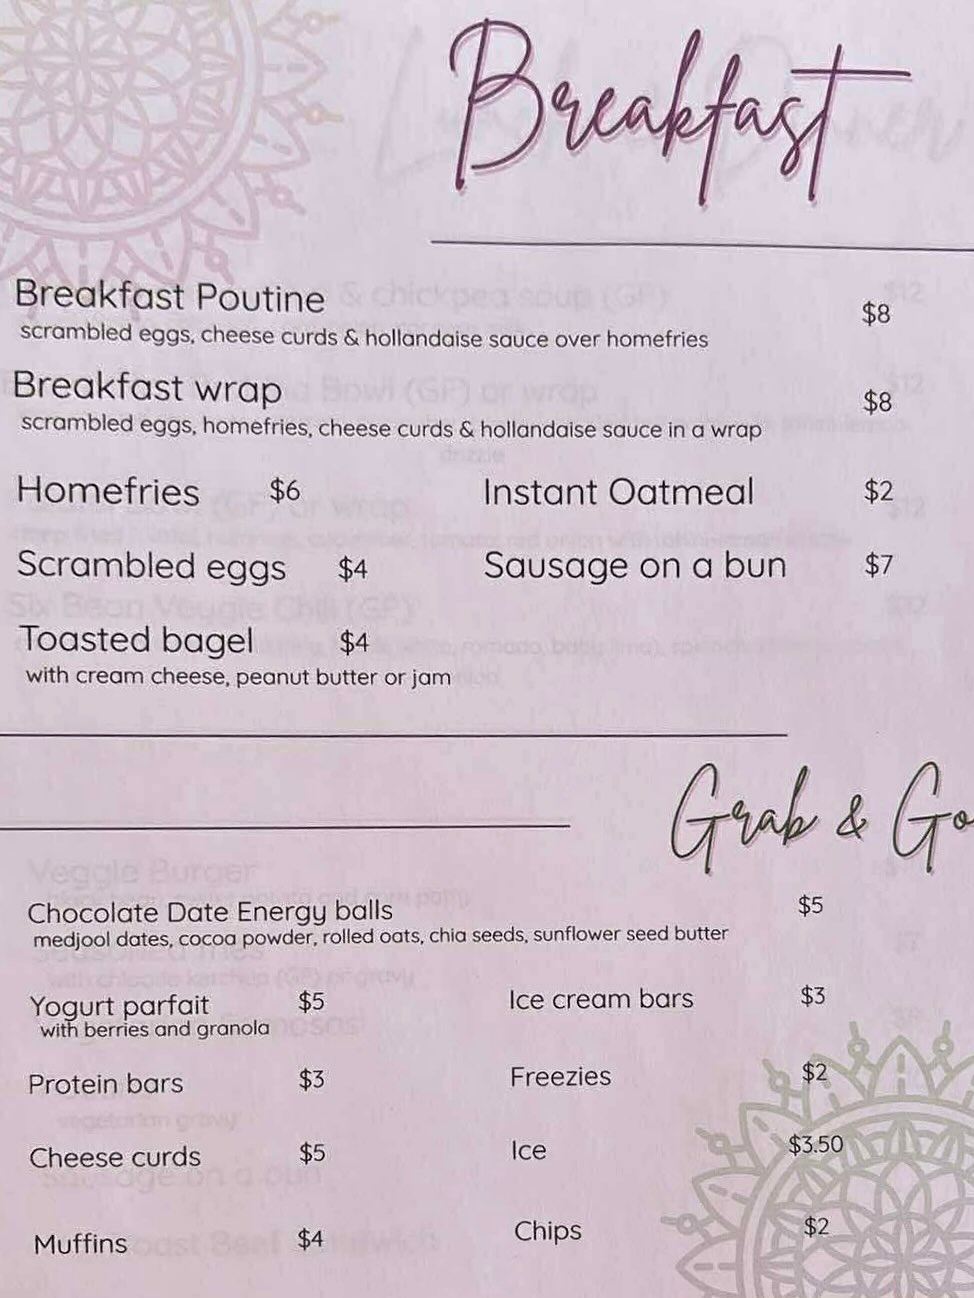 Breakfast
Breakfast Poutine $8
scrambled eggs, cheese curds & hollandaise sauce over homefries
Breakfast wrap $8
scrambled eggs, homefries, cheese curds & hollandaise sauce in a wrap
Homefries $6 Instant Oatmeal $2
Scrambled eggs $4 Sausage on a bun $7
Toasted bagel $4
with cream cheese, peanut butter or jam
Grab & Go
Chocolate Date Energy balls $5
medjool dates, cocoa powder, rolled oats, chia seeds, sunflower seed butter
Yogurt parfait $5 Ice cream bars $3
with berries and granola
Protein bars $3 Freezies $2
Cheese curds $5 Ice $3.50
Muffins $4 Chips $2